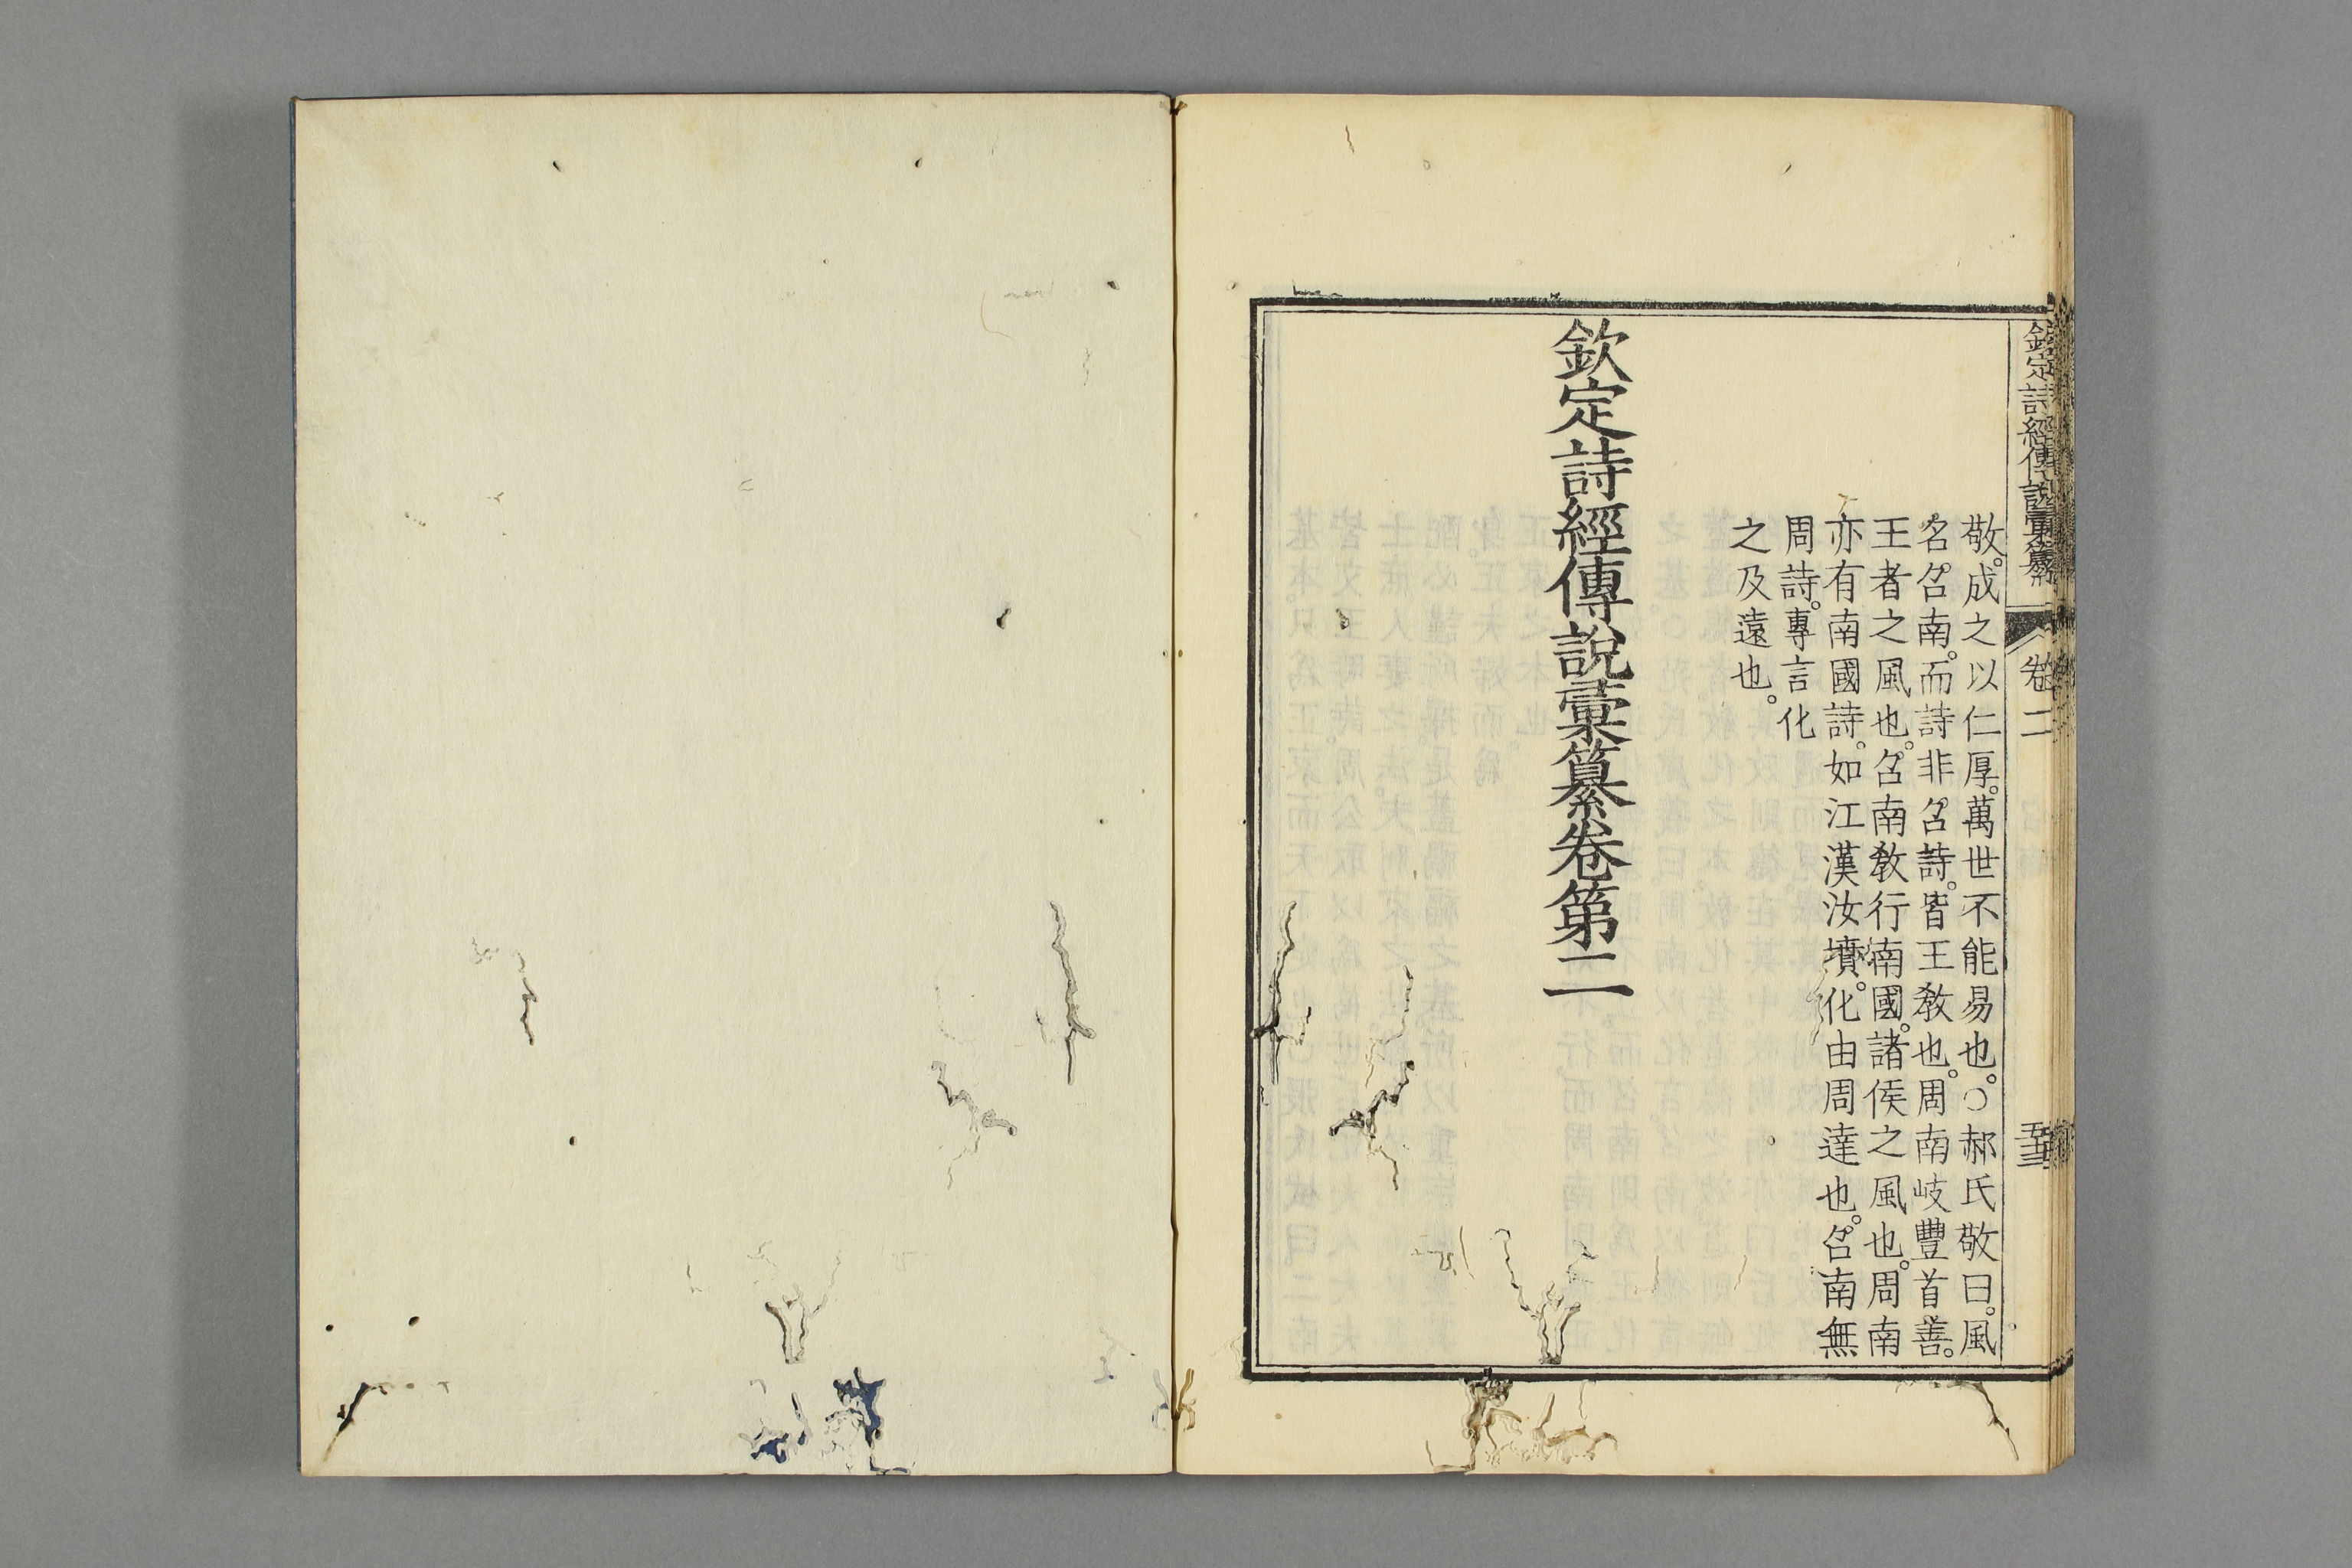 欽定詩經傳說彙纂 卷二 五十三
敬。成之以仁厚。萬世不能易也。○郝氏敬曰。風
名召南。而詩非召詩。皆王敎也。周南岐豐首善。
王者之風也。召南敎行南國。諸侯之風也。周南
亦有南國詩。如江漢汝墳。化由周達也。召南無
周詩。專言化
之及遠也。
欽定詩經傳說彙纂卷第二